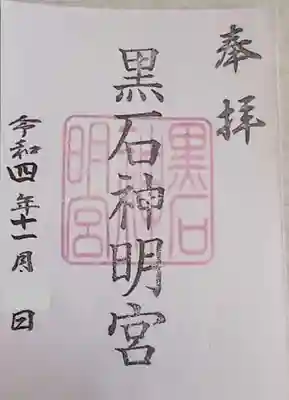 奉拝
黒石神明宮
黒石
神
明宮
令和四年十一月 日